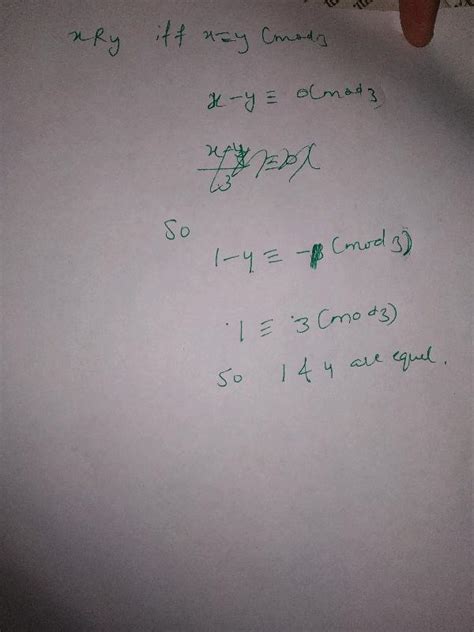 xRy iff x≡y (mod 3
x-y ≡ 0(mod 3
So
1-4 ≡ - (mod 3)
1 ≡ 3 (mod 3)
So 1 & 4 are equel.